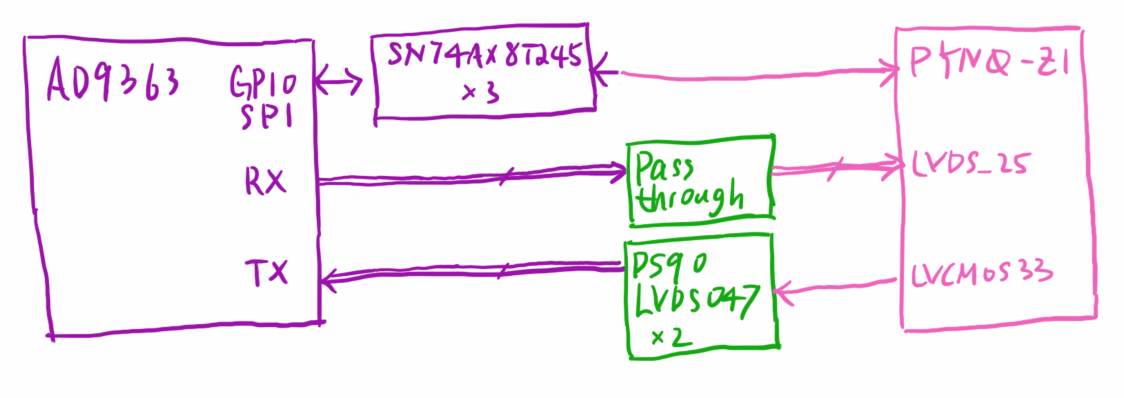 AD9363
GPIO
SPI
RX
TX
SN74AX8T245
×3
Pass
through
DS90
LVDS047
×2
PYNQ-Z1
LVDS_25
LVCMOS33